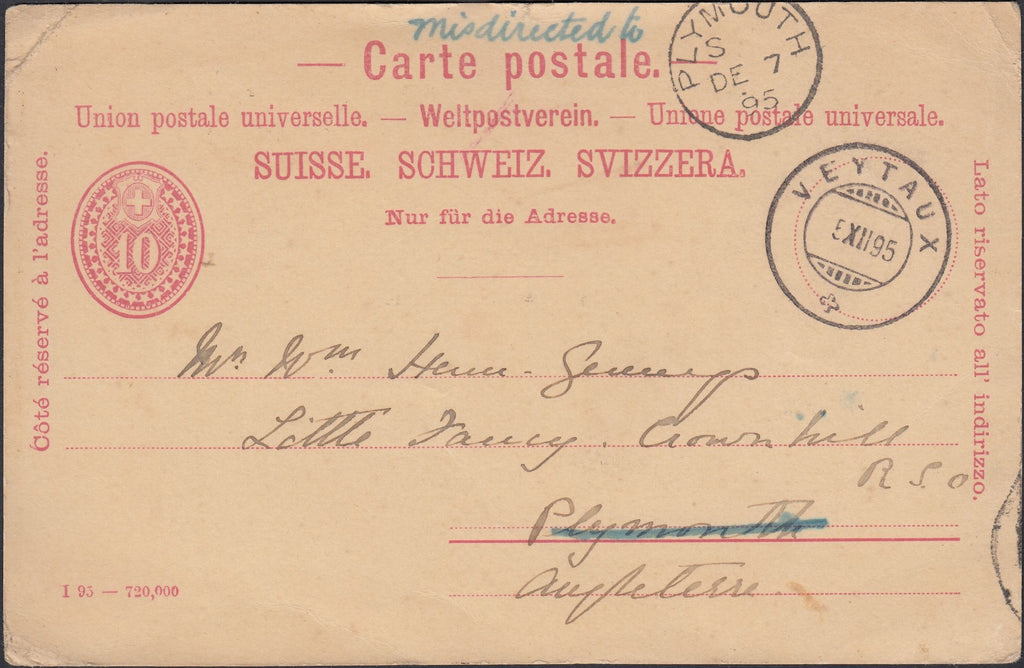 misdirected to
— Carte postale. —
Union postale universelle. — Weltpostverein. — Unione postale universale.
SUISSE. SCHWEIZ. SVIZZERA.
Nur für die Adresse.
Côté réservé à l'adresse.
Lato riservato all' indirizzo.
10
PLYMOUTH
S
DE 7
95
VEYTAUX
5XII95
Wm
Little Fancy. Crownhill
R S O
Plymouth
Angleterre
I 95 — 720,000